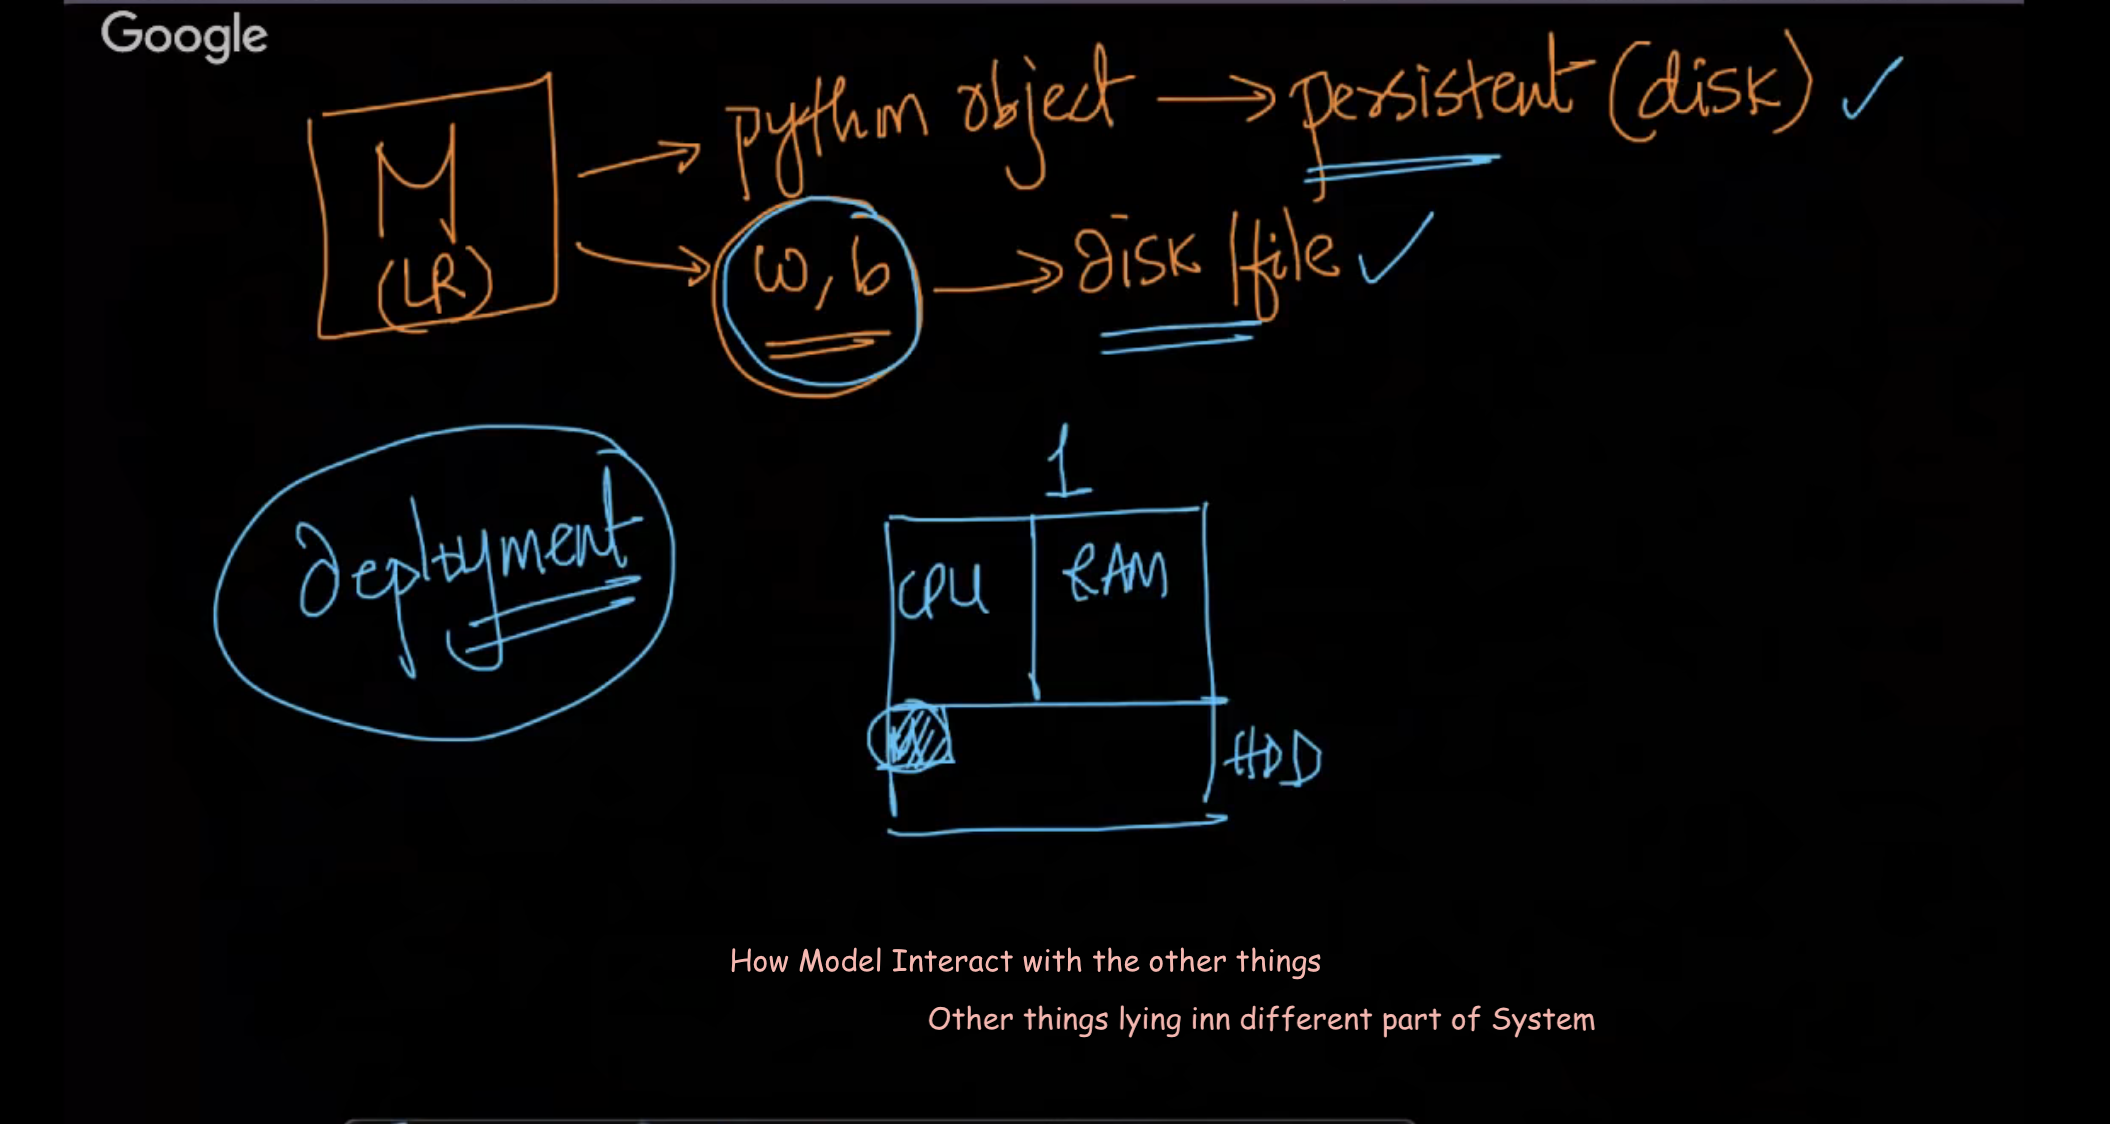 Google
M → python object → persistent (disk) ✓
(LR) → w, b → disk file ✓
deployment
1
CPU RAM
HDD
How Model Interact with the other things
Other things lying inn different part of System